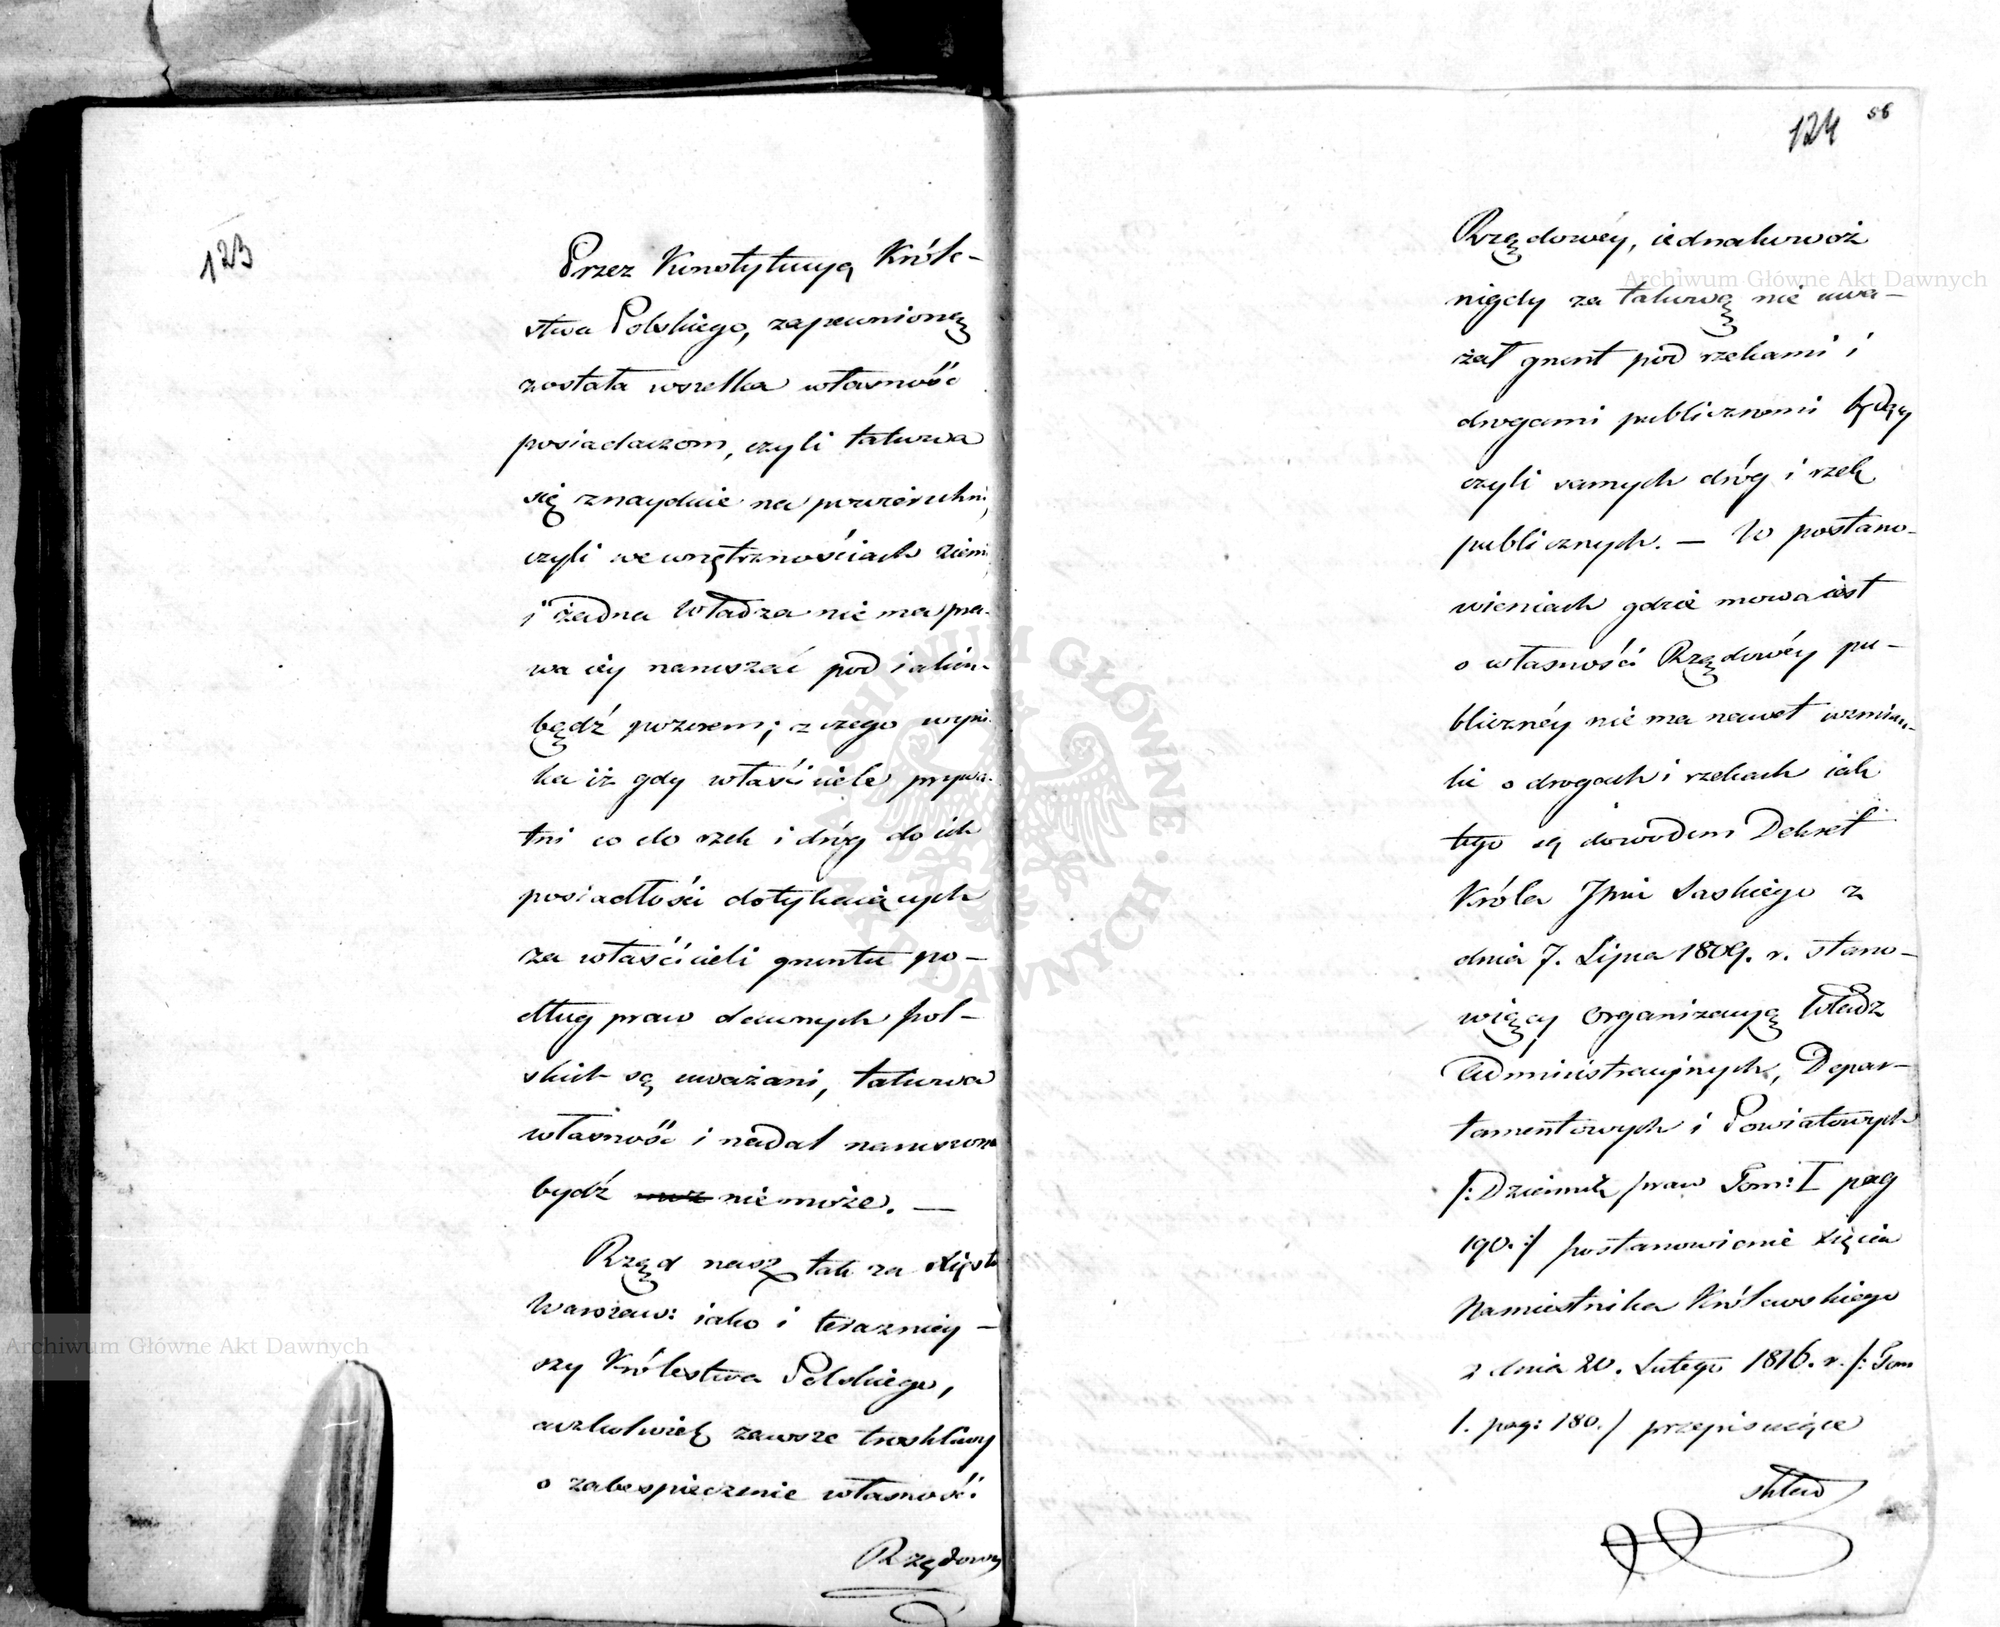 123
Przez Konstytucyą Króle-
stwa Polskiego, zapewnioną
została wszelka własność
posiadaczom, czyli takowa
się znayduie na powierzchni,
czyli we wnętrznościach ziemi
i żadna Władza nie ma pra-
wa iéy naruszać pod iakim-
bądź pozorem; z czego wyni-
ka iż gdy właściciele prywa-
tni co do rzek i dróg do ich
posiadłości dotykaiących
za właścicieli gruntu po-
dług praw dawnych pol-
skich są uważani, takowa
własność i nadal naruszona
bydź nie może. —
Rząd nasz tak za Xięstw
Warszaw: iako i terazniey-
szy Królestwa Polskiego,
aczkolwiek zawsze troskliwy
o zabespieczenie własności
Rządowey
124 56
Rządowéy, iednakowoż
nigdy za takową nie uwa-
żał grunt pod rzekami i
drogami publicznemi będący
czyli samych dróg i rzek
publicznych. — W postano-
wieniach gdzie mowa iest
o własności Rządowéy pu-
blicznéy nie ma nawet wzmian-
ki o drogach i rzekach iak
tego są dowodem Dekret
Króla Jmci Saskiego z
dnia 7. Lipca 1809. r. stano-
wiący Organizacyą Władz
Administracyjnych, Depar-
tamentowych i Powiatowych
/: Dziennik praw Tom: I pag
190. :/ postanowienie Xięcia
Namiestnika Królewskiego
z dnia 20. Lutego 1816. r. /: Tom
1. pag: 180. / przepisuiące
skład
Archiwum Główne Akt Dawnych
Archiwum Główne Akt Dawnych
ARCHIWUM GŁÓWNE AKT DAWNYCH